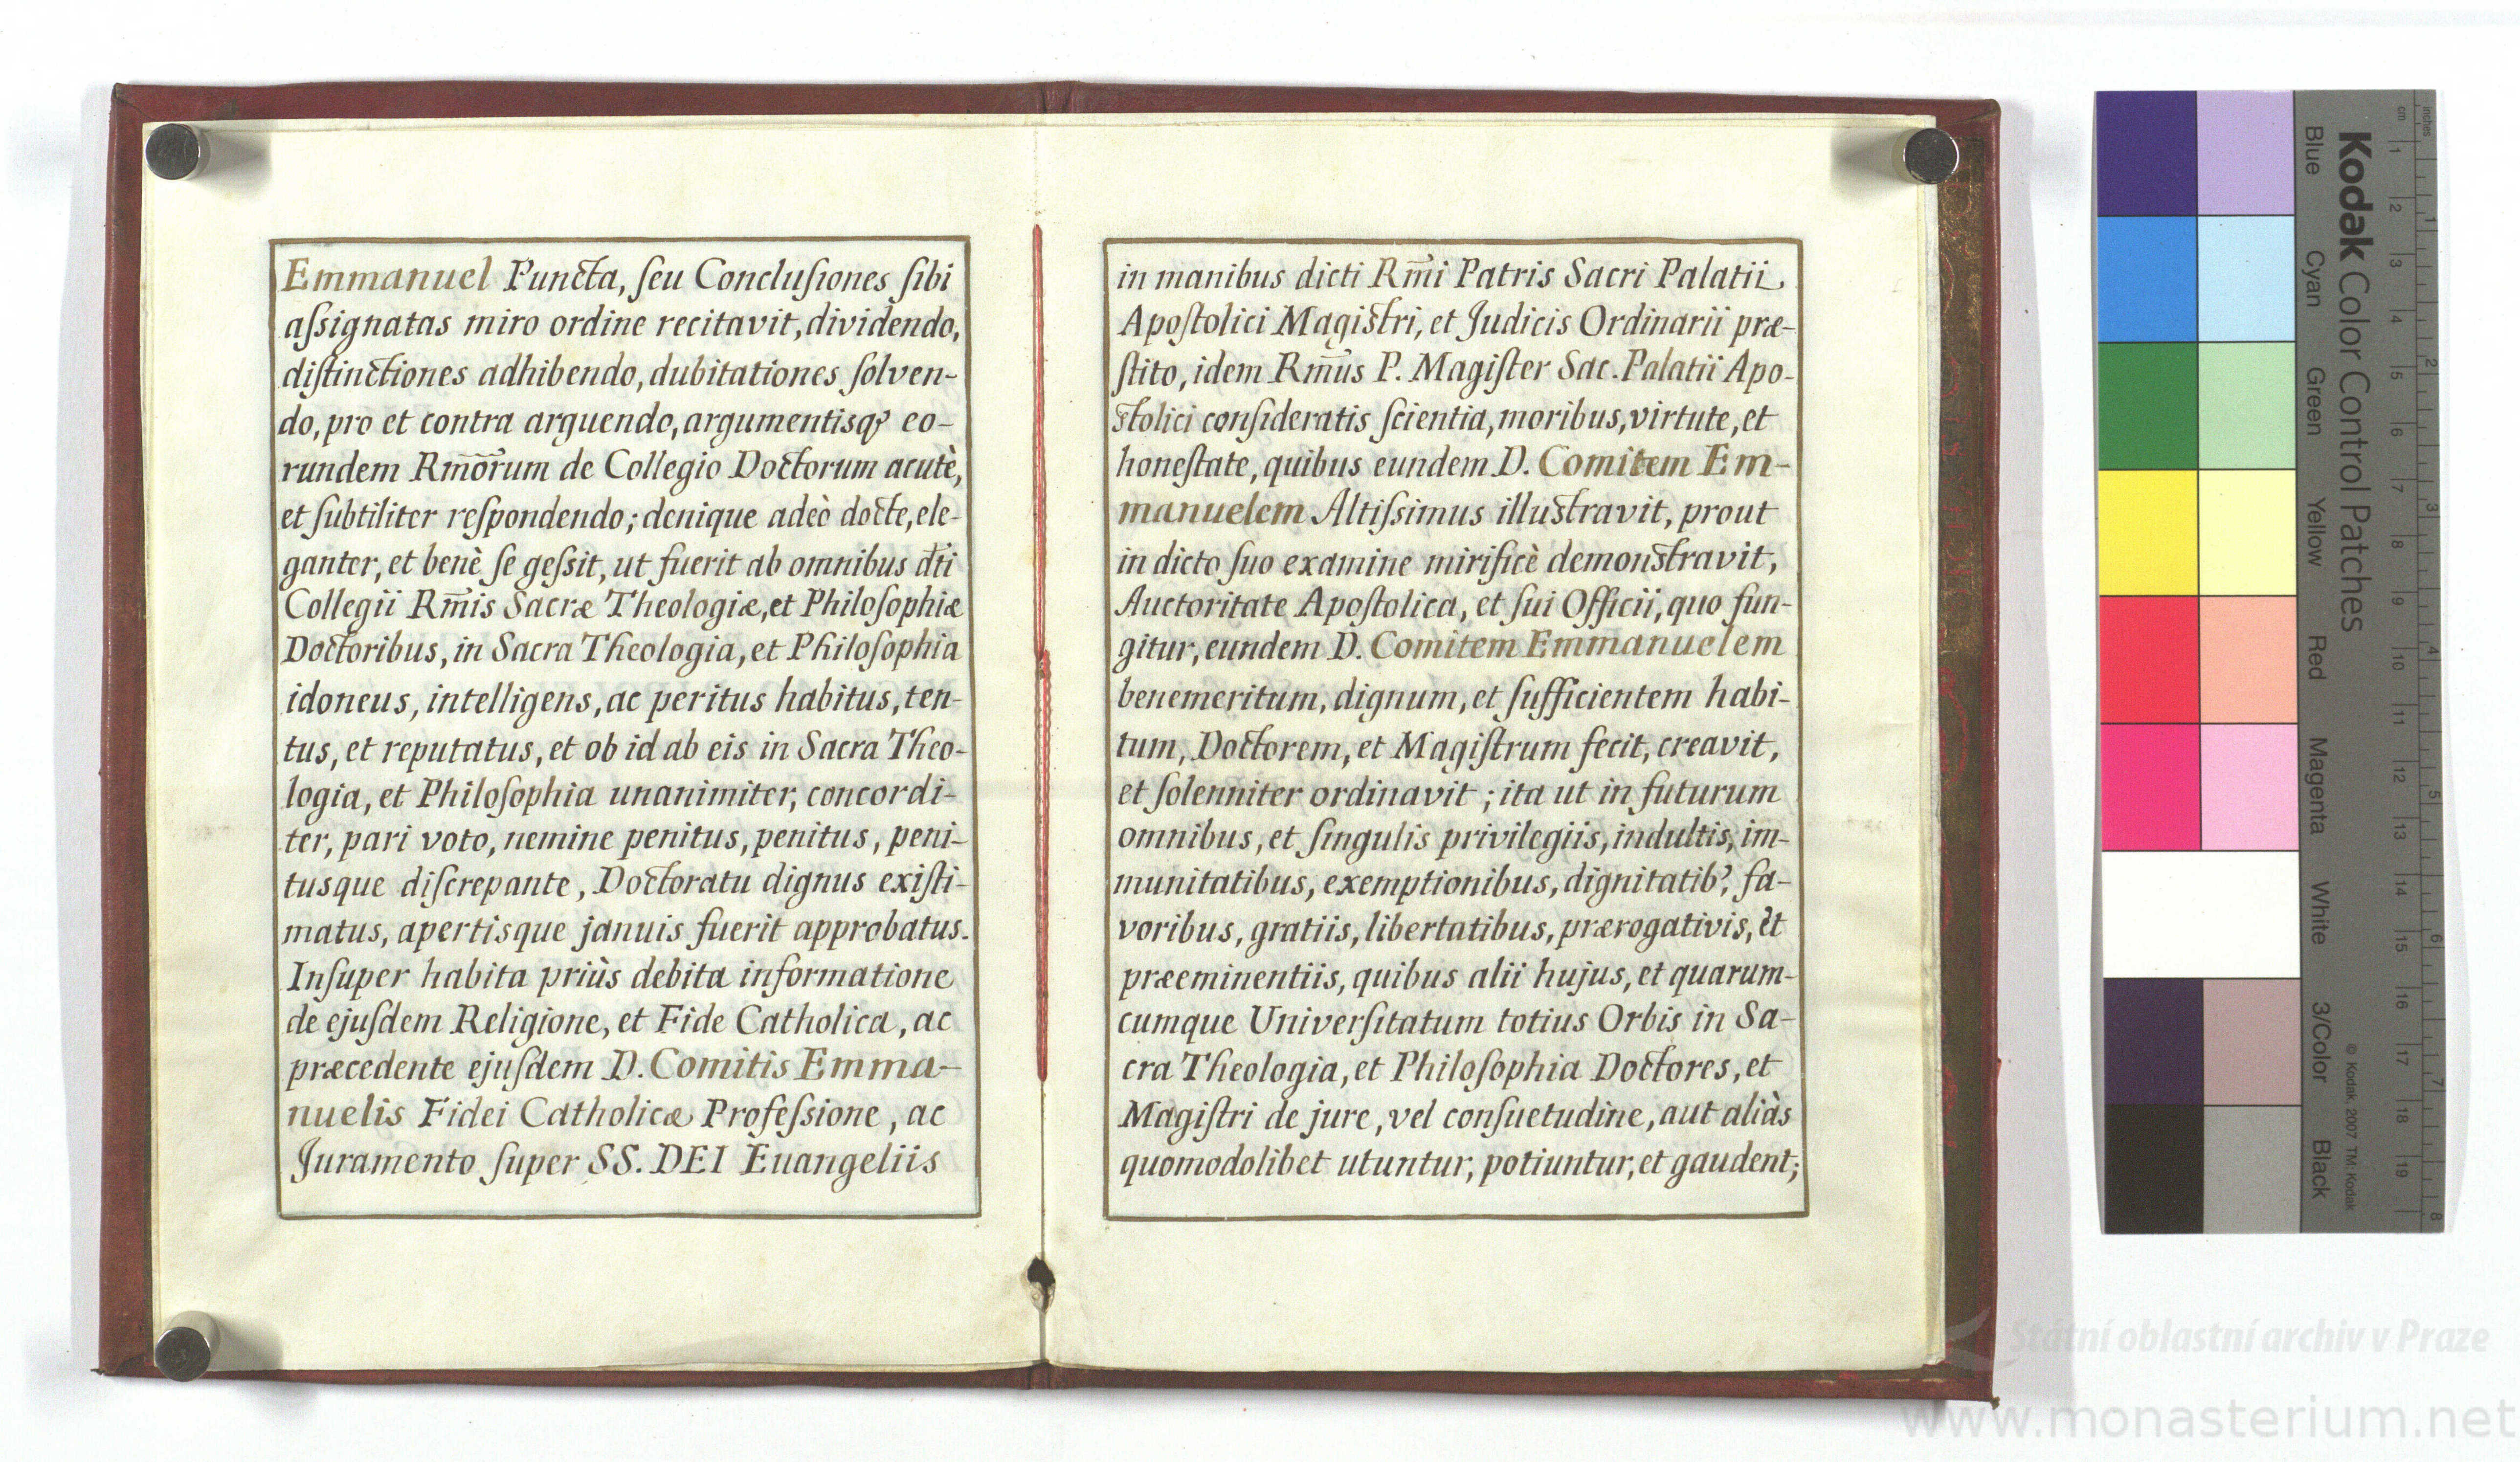 Emmanuel Puncta, ſeu Concluſiones ſibi
aſsignatas miro ordine recitavit, dividendo,
diſtinctiones adhibendo, dubitationes ſolven-
do, pro et contra arguendo, argumentisq₃ eo-
rundem Rm̃õrum de Collegio Doctorum acutè,
et ſubtiliter reſpondendo; denique adeò docte, ele-
ganter, et benè ſe geſsit, ut fuerit ab omnibus dt̃i
Collegii Rm̃is Sacræ Theologiæ, et Philoſophiæ
Doctoribus, in Sacra Theologia, et Philoſophia
idoneus, intelligens, ac peritus habitus, ten-
tus, et reputatus, et ob id ab eis in Sacra Theo-
logia, et Philoſophia unanimiter, concordi-
ter, pari voto, nemine penitus, penitus, peni-
tusque diſcrepante, Doctoratu dignus exiſti-
matus, apertisque januis fuerit approbatus.
Inſuper habita priùs debita informatione
de ejuſdem Religione, et Fide Catholica, ac
præcedente ejuſdem D. Comitis Emma-
nuelis Fidei Catholicæ Profeſsione, ac
Juramento ſuper SS. DEI Euangeliis
in manibus dicti Rm̃i Patris Sacri Palatii
Apoſtolici Magiſtri, et Judicis Ordinarii præ-
ſtito, idem Rm̃us P. Magiſter Sac. Palatii Apo-
ſtolici conſideratis ſcientia, moribus, virtute, et
honeſtate, quibus eundem D. Comitem Em-
manuelem Altiſsimus illuſtravit, prout
in dicto ſuo examine mirificè demonſtravit,
Auctoritate Apoſtolica, et ſui Officii, quo fun-
gitur, eundem D. Comitem Emmanuelem
benemeritum, dignum, et ſufficientem habi-
tum, Doctorem, et Magiſtrum fecit, creavit,
et ſolenniter ordinavit; ita ut in futurum
omnibus, et ſingulis privilegiis, indultis, im-
munitatibus, exemptionibus, dignitatib⁹, fa-
voribus, gratiis, libertatibus, prærogativis, et
præeminentiis, quibus alii hujus, et quarum-
cumque Univerſitatum totius Orbis in Sa-
cra Theologia, et Philoſophia Doctores, et
Magiſtri de jure, vel conſuetudine, aut aliàs
quomodolibet utuntur, potiuntur, et gaudent;
Kodak Color Control Patches
Blue Cyan Green Yellow Red Magenta White 3/Color Black
© Kodak, 2007 TM: Kodak
inches 1 2 3 4 5 6 7 8
cm 1 2 3 4 5 6 7 8 9 10 11 12 13 14 15 16 17 18 19
Státní oblastní archiv v Praze
www.monasterium.net